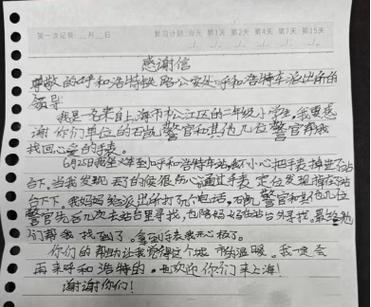 第一次记录: __月__日 复习计划:当天 第1天 第2天 第4天 第7天 第15天
感谢信
尊敬的呼和浩特铁路公安处呼和浩特车站派出所的
领导
我是一名来自上海市松江区的二年级小学生,我要感
谢你们单位的石 警官和其他几位警官帮我
找回心爱的手表。
6月25日我坐火车到呼和浩特车站,我不小心把手表掉进了站
台下。当我发现丢了的候很伤心通过手表定位发现掉在站
台下。我妈妈给派出所打了几个电话,石 警官和其他几位
警官先后几次去站台里寻找,也陪妈妈在站台外寻找。最终他
们帮我找到了。拿到手表我开心极了。
你们的帮助让我觉得这个城市的温暖。我一定会
再来呼和浩特的。也欢迎你们来上海!
谢谢你们!